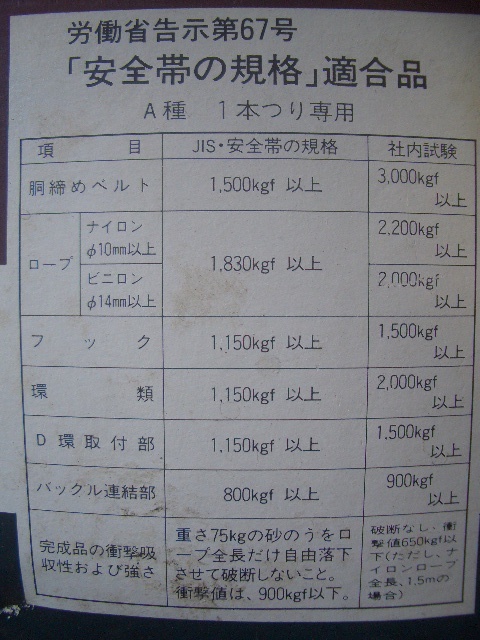 労働省告示第67号
「安全帯の規格」適合品
A種 1本つり専用
項目 JIS・安全帯の規格 社内試験
胴締めベルト 1,500kgf 以上 3,000kgf 以上
ロープ ナイロン φ10mm以上 1,830kgf 以上 2,200kgf 以上
ビニロン φ14mm以上 2,000kgf 以上
フック 1,150kgf 以上 1,500kgf 以上
環類 1,150kgf 以上 2,000kgf 以上
D環取付部 1,150kgf 以上 1,500kgf 以上
バックル連結部 800kgf 以上 900kgf 以上
完成品の衝撃吸
収性および強さ
重さ75kgの砂のうをロ
ープ全長だけ自由落下
させて破断しないこと。
衝撃値は、900kgf以下。
破断なし、衝
撃値650kgf以
下(ただし、ナ
イロンロープ
全長、1.5mの
場合)